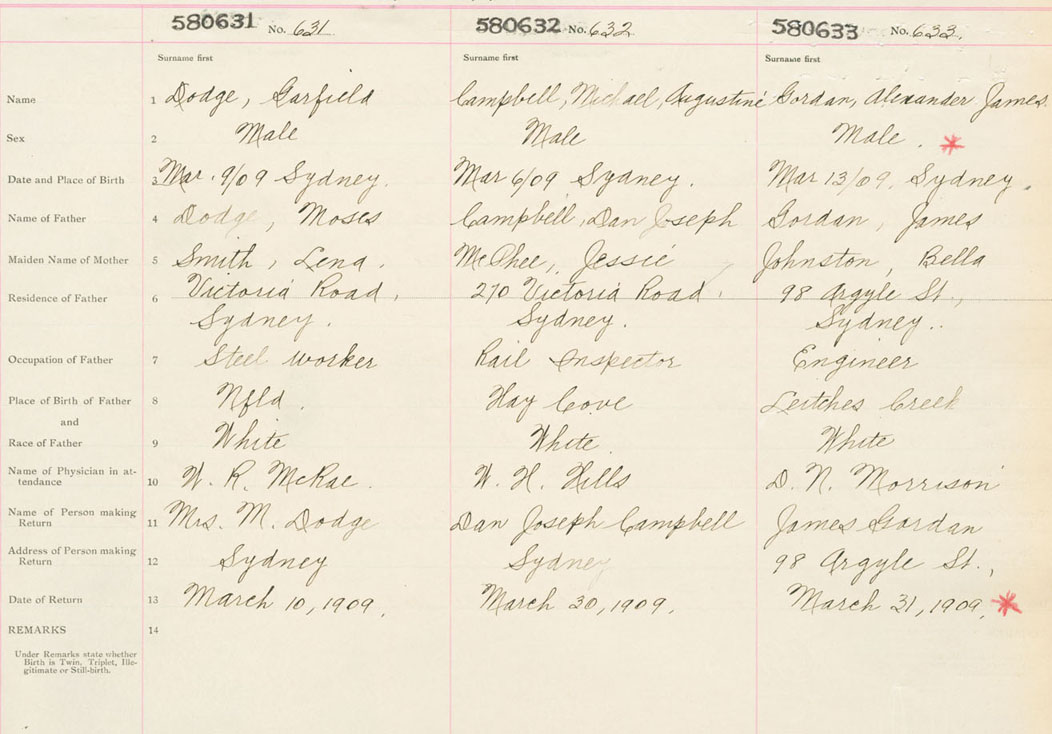 580631 No. 631 580632 No. 632 580633 No. 633.
Surname first Surname first Surname first
Name 1 Dodge, Garfield Campbell, Michael, Augustine Gordan, Alexander James.
Sex 2 Male Male Male.
Date and Place of Birth 3 Mar. 9/09 Sydney. Mar 6/09 Sydney. Mar 13/09, Sydney.
Name of Father 4 Dodge, Moses Campbell, Dan Joseph Gordan, James
Maiden Name of Mother 5 Smith, Lena. McPhee, Jessie Johnston, Bella
Residence of Father 6 Victoria Road, 270 Victoria Road. 98 Argyle St.,
Sydney. Sydney. Sydney..
Occupation of Father 7 Steel worker Rail Inspector Engineer
Place of Birth of Father 8 Nfld. Hay Cove Leitches Creek
and
Race of Father 9 White White. White
Name of Physician in at-
tendance 10 W. R. McRae. W. H. Hills D. N. Morrison
Name of Person making
Return 11 Mrs. M. Dodge Dan Joseph Campbell James Gordan
Address of Person making
Return 12 Sydney Sydney 98 Argyle St.,
Date of Return 13 March 10, 1909. March 30, 1909. March 31, 1909.
REMARKS 14
Under Remarks state whether
Birth is Twin, Triplet, Ille-
gitimate or Still-birth.